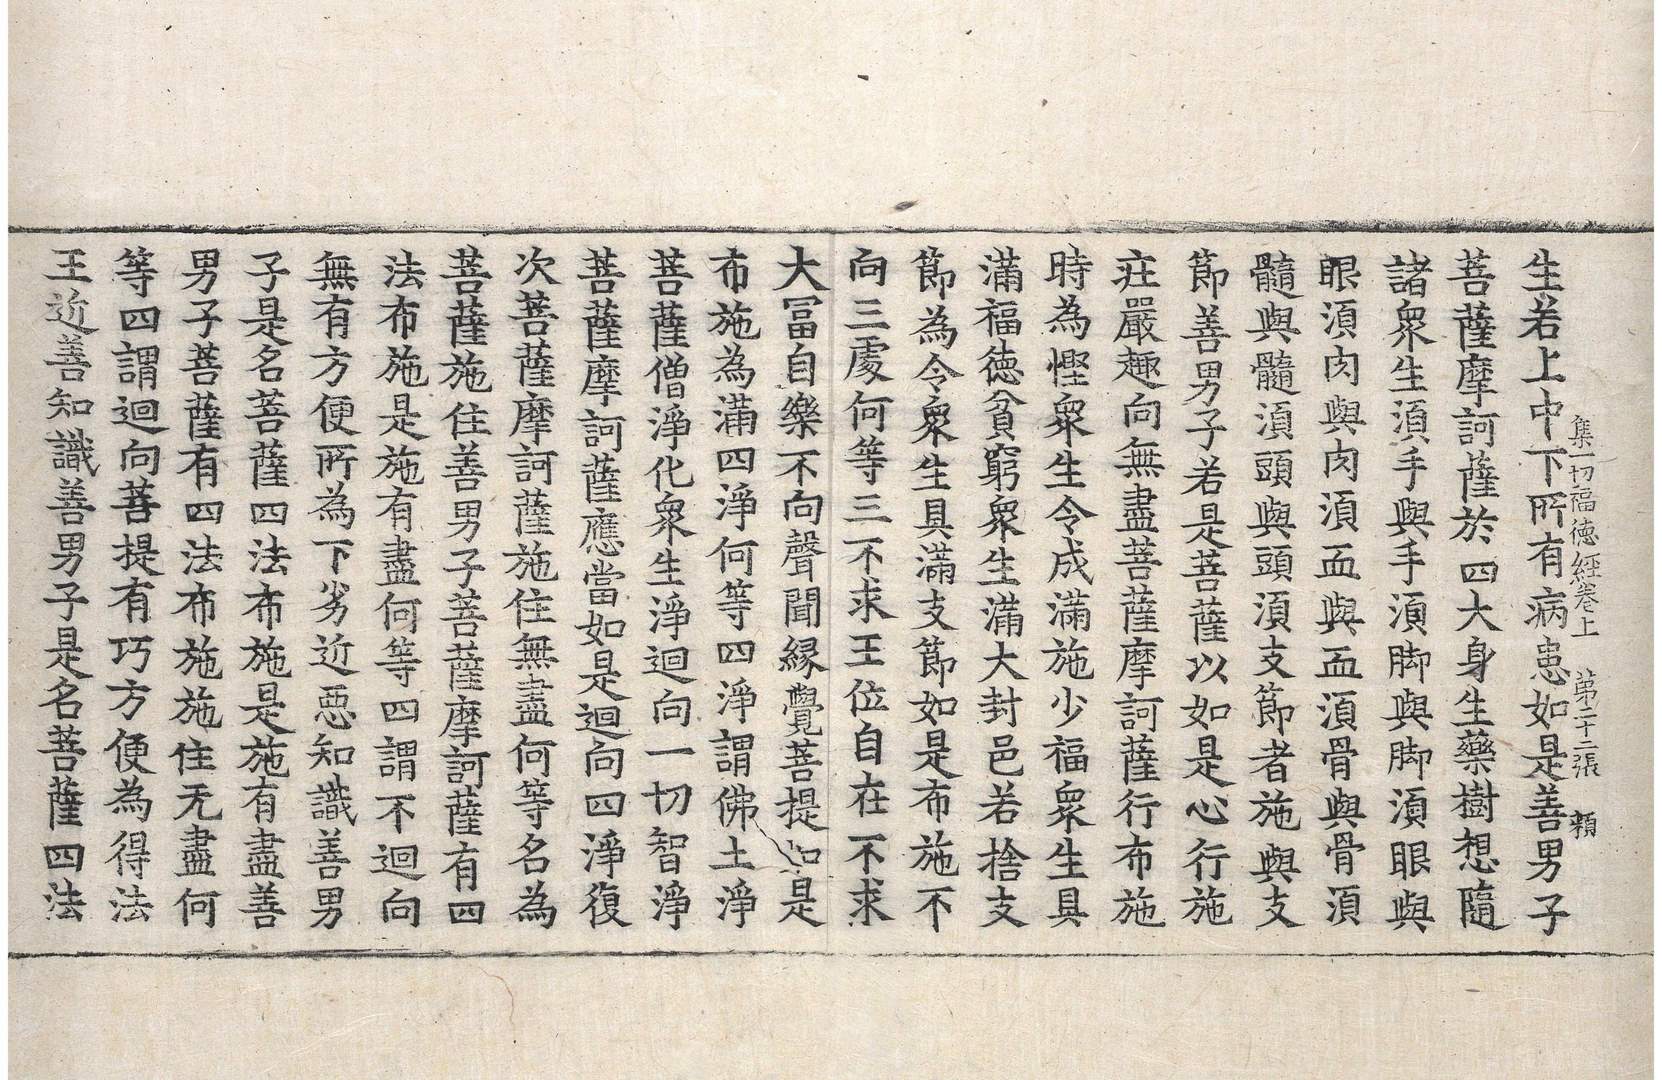 集一切福德經卷上　第二十二張　賴
生若上中下所有病患如是善男子
菩薩摩訶薩於四大身生藥樹想隨
諸衆生湏手與手湏脚與脚湏眼與
眼湏肉與肉湏血與血湏骨與骨湏
髓與髓湏頭與頭湏支節者施與支
節善男子若是菩薩以如是心行施
庄嚴趣向無盡菩薩摩訶薩行布施
時為慳衆生令成滿施少福衆生具
滿福徳貧窮衆生滿大封邑若捨支
節為令衆生具滿支節如是布施不
向三處何等三不求王位自在不求
大冨自樂不向聲聞縁覺菩提如是
布施為滿四淨何等四淨謂佛土淨
菩薩僧淨化衆生淨迴向一切智淨
菩薩摩訶薩應當如是迴向四淨復
次菩薩摩訶薩施住無盡何等名為
菩薩施住善男子菩薩摩訶薩有四
法布施是施有盡何等四謂不迴向
無有方便所為下劣近惡知識善男
子是名菩薩四法布施是施有盡善
男子菩薩有四法布施施住无盡何
等四謂迴向菩提有巧方便為得法
王近善知識善男子是名菩薩四法